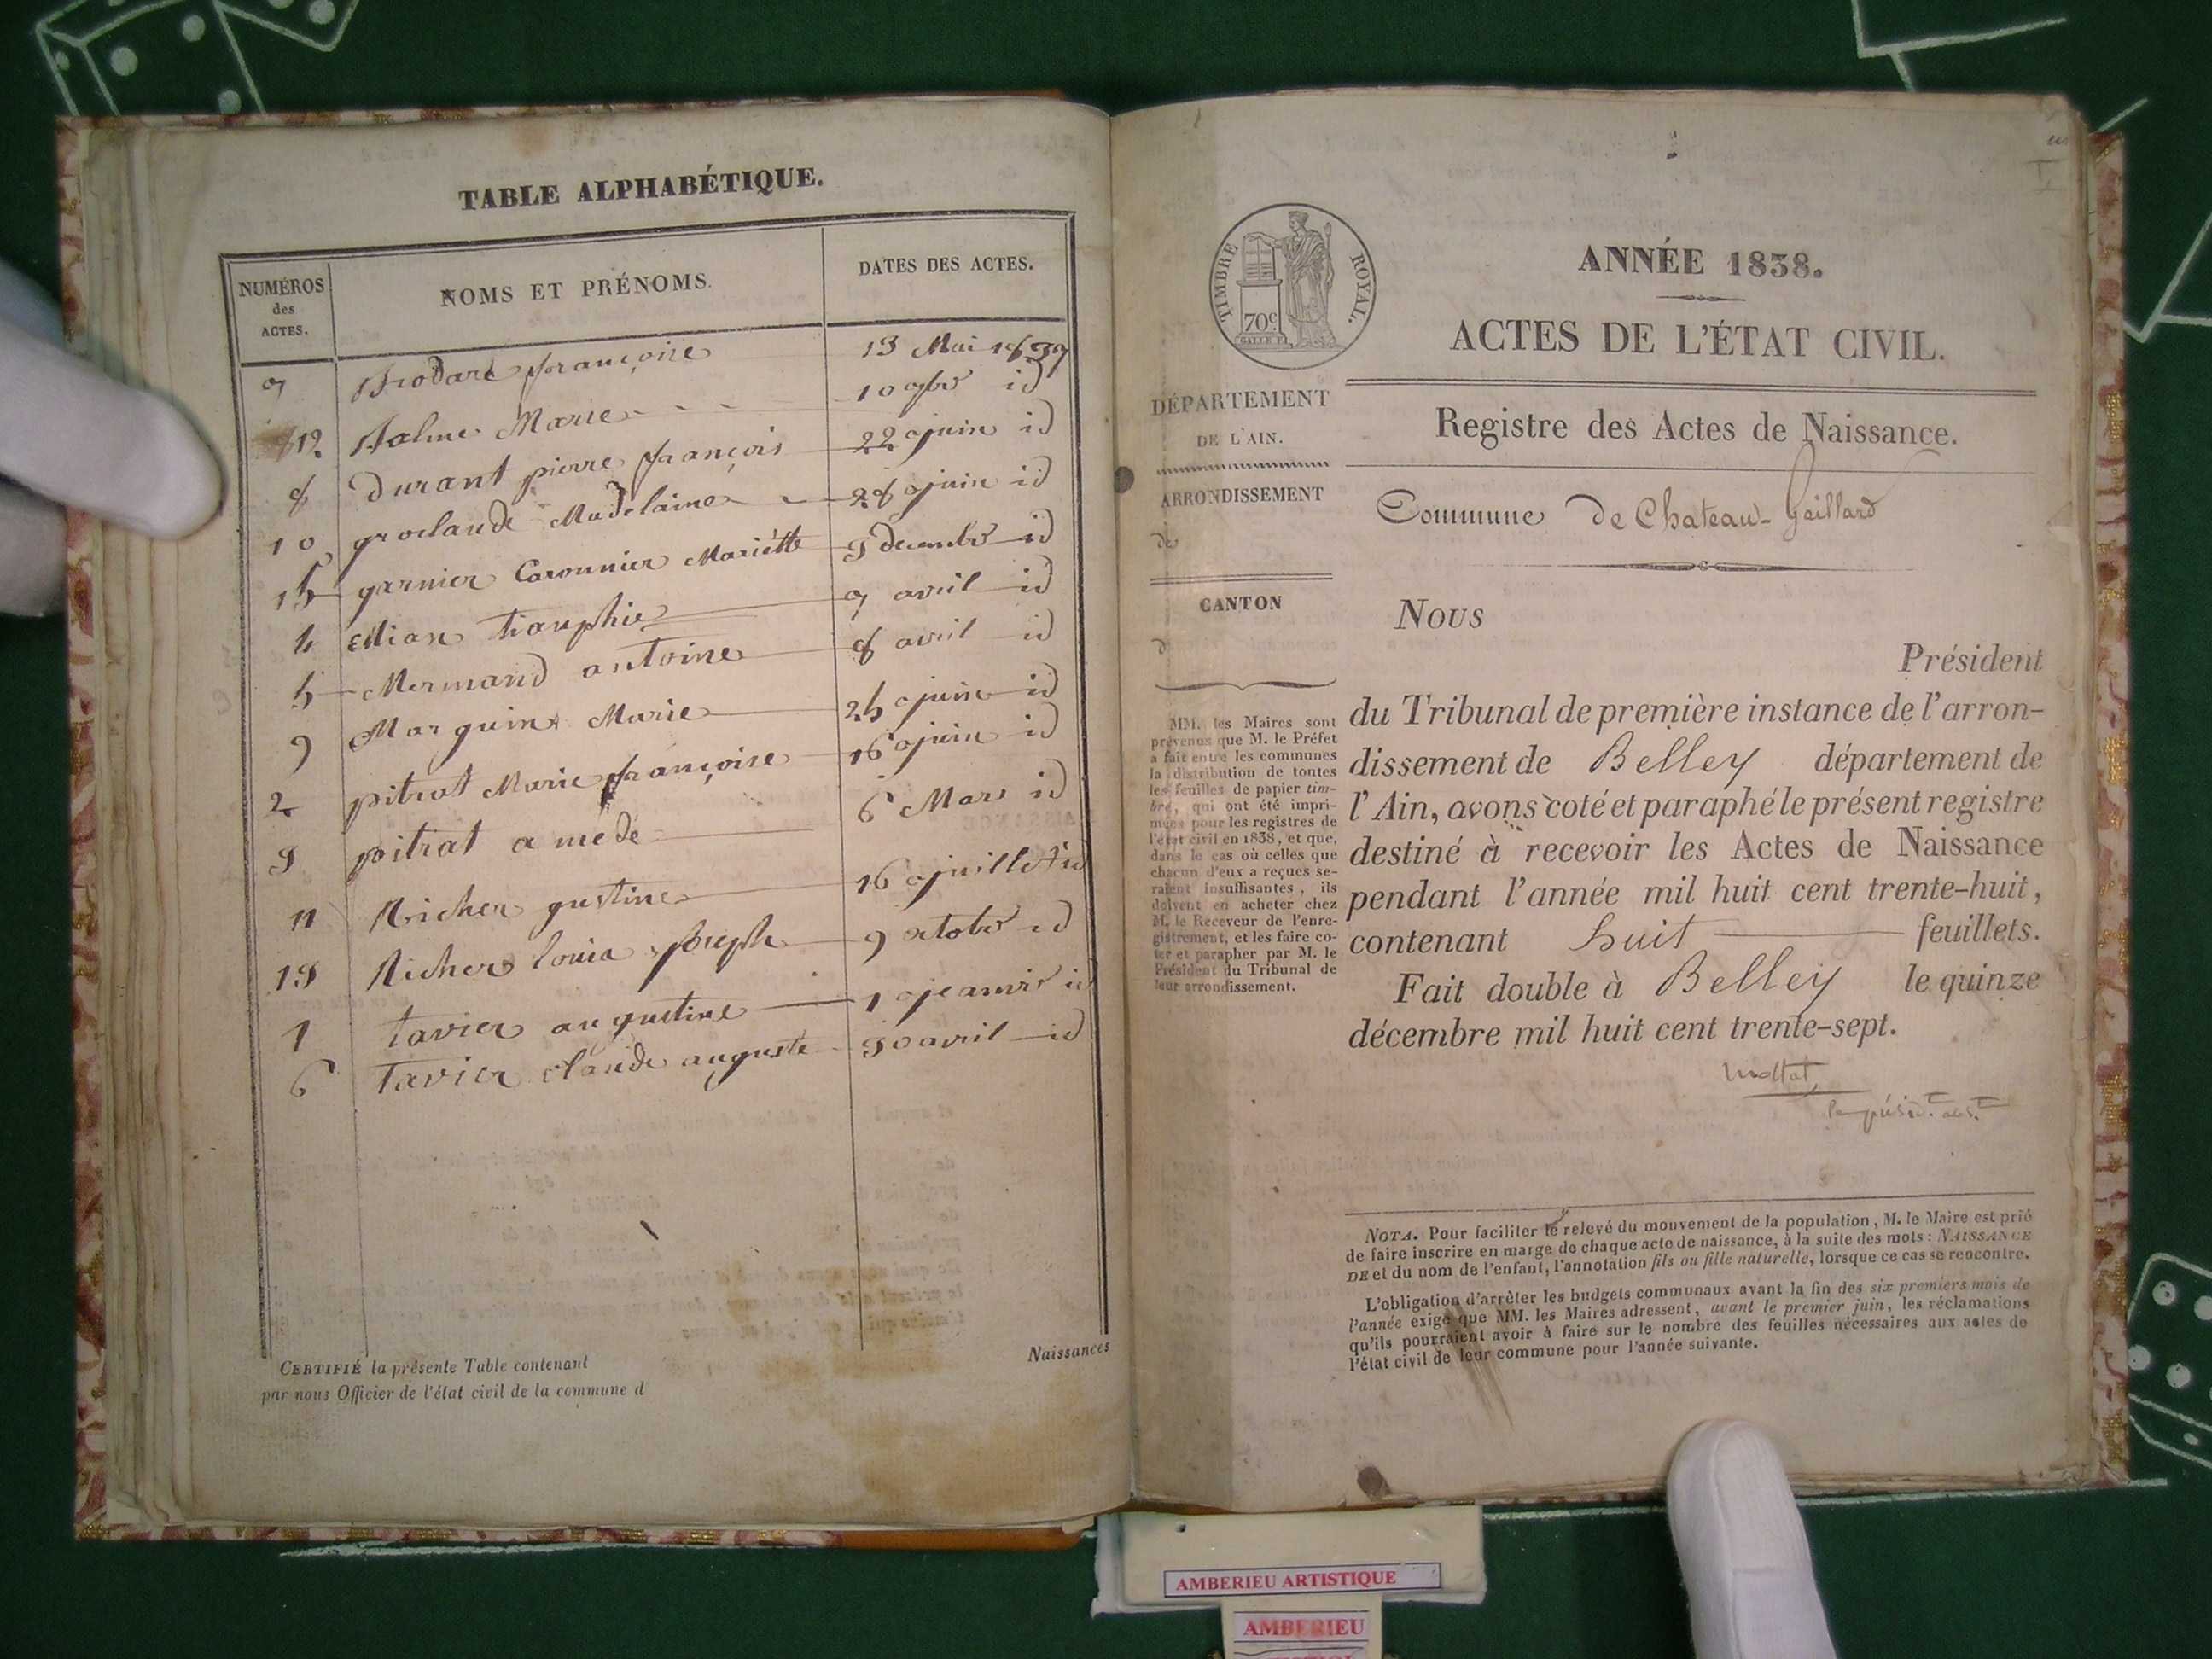 TABLE ALPHABÉTIQUE.
NUMÉROS
des
ACTES.
NOMS ET PRÉNOMS.
DATES DES ACTES.
7 Brodard françoise 13 Mai
12 Marie 10 9bre id
8 durant pierre françois 22 juin id
10 groclaude Madelaine 28 juin id
15 garnier Caronnier Mariétte 9 decembre id
4 7 avril id
5 Mermand antoine 8 avril id
9 Marguin Marie 25 juin id
2 pitrat Marie françoise 16 juin id
3 pitrat amede 6 Mars id
11 Richer gustine 16 juillet id
13 Richer louis joseph 9 octobre id
1 tavier augustine 1 id
6 tavier claude auguste 30 avril id
CERTIFIÉ la présente Table contenant
par nous Officier de l'état civil de la commune d
Naissances
TIMBRE ROYAL.
70c
ANNÉE 1838.
ACTES DE L'ÉTAT CIVIL.
DÉPARTEMENT
DE L'AIN.
Registre des Actes de Naissance.
ARRONDISSEMENT
de
Commune de Chateau-Gaillard
CANTON
d
MM. les Maires sont
prévenus que M. le Préfet
a fait entre les communes
la distribution de toutes
les feuilles de papier tim-
bré, qui ont été impri-
mées pour les registres de
l'état civil en 1838, et que,
dans le cas où celles que
chacun d'eux a reçues se-
raient insuffisantes, ils
doivent en acheter chez
M. le Receveur de l'enre-
gistrement, et les faire co-
ter et parapher par M. le
Président du Tribunal de
leur arrondissement.
Nous
Président
du Tribunal de première instance de l'arron-
dissement de Belley département de
l'Ain, avons coté et paraphé le présent registre
destiné à recevoir les Actes de Naissance
pendant l'année mil huit cent trente-huit,
contenant huit feuillets.
Fait double à Belley le quinze
décembre mil huit cent trente-sept.
NOTA. Pour faciliter le relevé du mouvement de la population, M. le Maire est prié
de faire inscrire en marge de chaque acte de naissance, à la suite des mots : NAISSANCE
DE et du nom de l'enfant, l'annotation fils ou fille naturelle, lorsque ce cas se rencontre.
L'obligation d'arrêter les budgets communaux avant la fin des six premiers mois de
l'année exige que MM. les Maires adressent, avant le premier juin, les réclamations
qu'ils pourraient avoir à faire sur le nombre des feuilles nécessaires aux actes de
l'état civil de leur commune pour l'année suivante.
AMBERIEU ARTISTIQUE
AMBERIEU